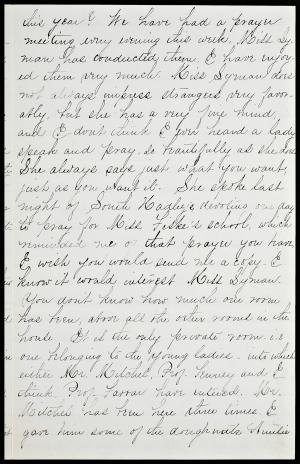 this year? We have had a prayer
meeting every evening this week, Miss Ly-
man has conducted them, I have enjoy-
ed them very much. Miss Lyman does
not always impress strangers very favor-
ably, but she has a very fine mind,
and I don't think I ever heard a lady
speak and pray, so beautifully as she does
She always says just what you want,
just as you want it. She spoke last
night of South Hadley's devoting one day
to pray for Miss Fiske's school, which
reminded me of that prayer you have,
I wish you would send me a copy. I
know it would interest Miss Lyman.
You don't know how much our room
has been, above all the other rooms in the
house. It is the only private room i.e
one belonging to the young ladies - into which
either Mr. Mitchel, Prof. Tenney and I
think, Prof. Farrar have entered. Mr.
Mitchel has been here three times. I
gave him some of the doughnuts Auntie